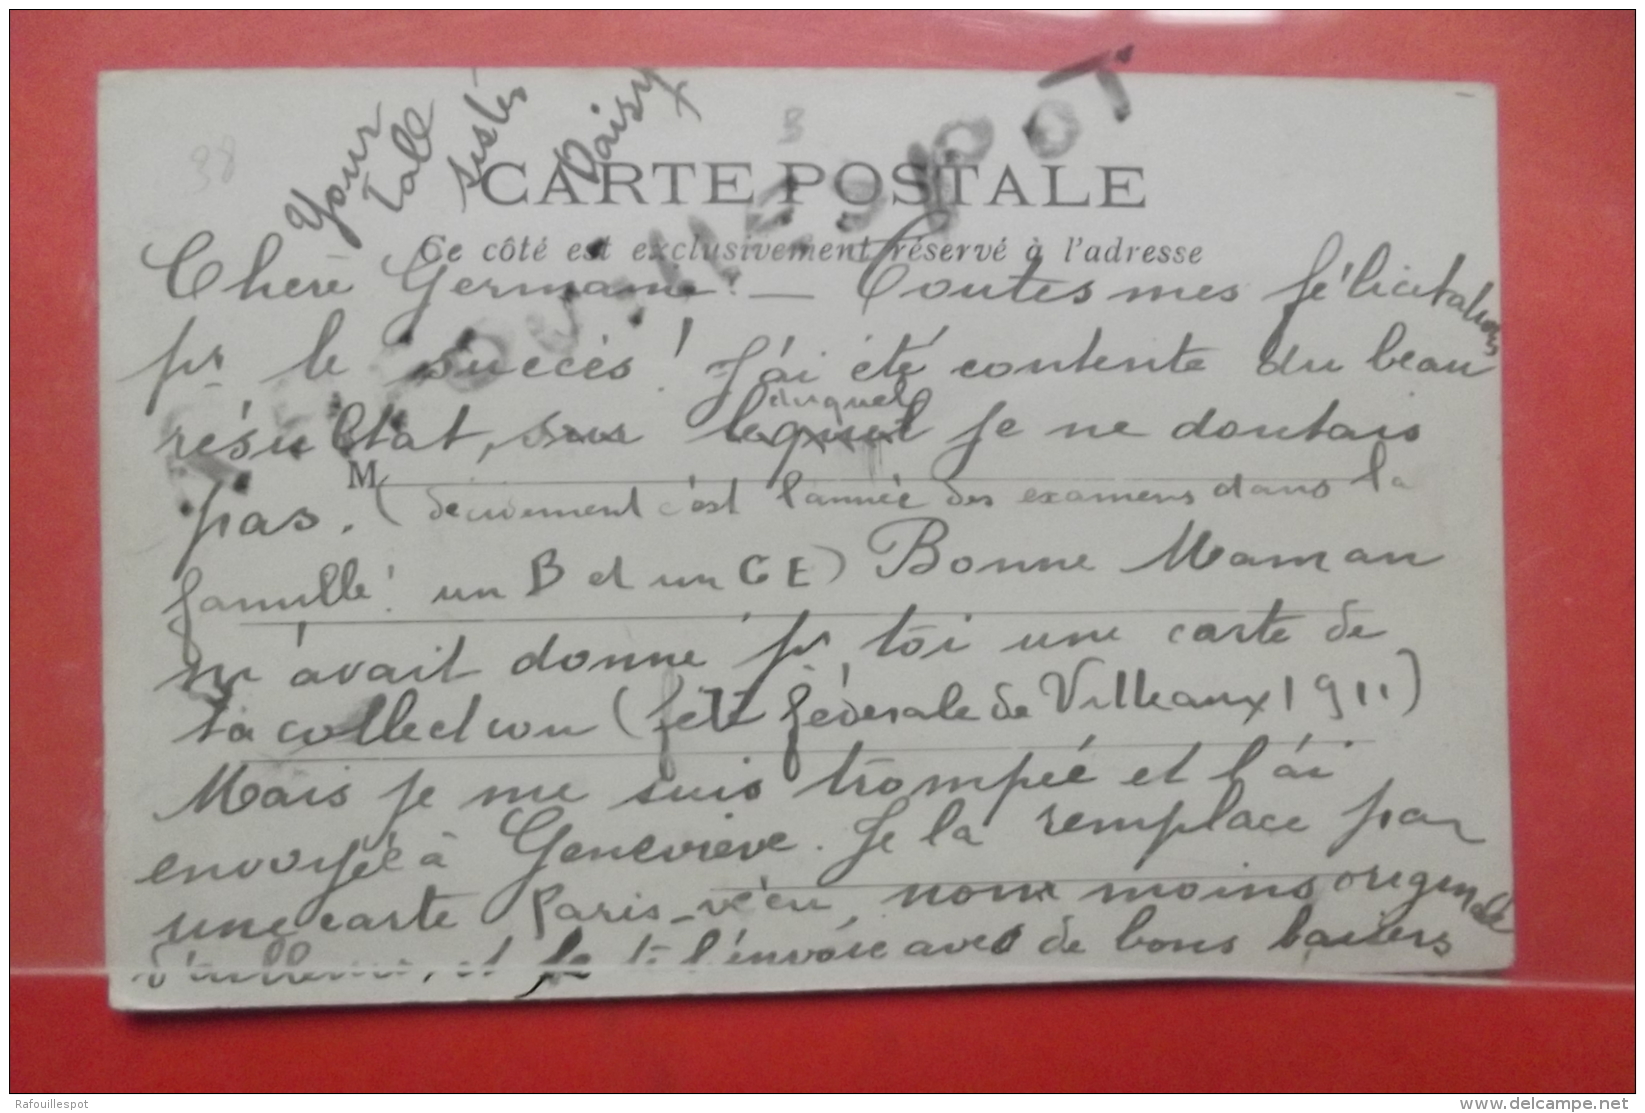 38
8
Your
tall
sister
Daisy
CARTE POSTALE
Ce côté est exclusivement réservé à l'adresse
Chère Germaine! — Toutes mes félicitations
pr le succès! J'ai été contente du beau
duquel
résultat, sur lequel je ne doutais
M
pas. (décidément c'est l'année des examens dans la
famille! un B et un CE) Bonne Maman
m'avait donné pr toi une carte de
ta collection (fête fédérale de 1911)
Mais je me suis trompée et l'ai
envoyée à Geneviève. Je la remplace par
une carte Paris-vécu, non moins originale
d'ailleurs, et je te l'envoie avec de bons baisers
Rafouillespot
Rafouillespot
www.delcampe.net